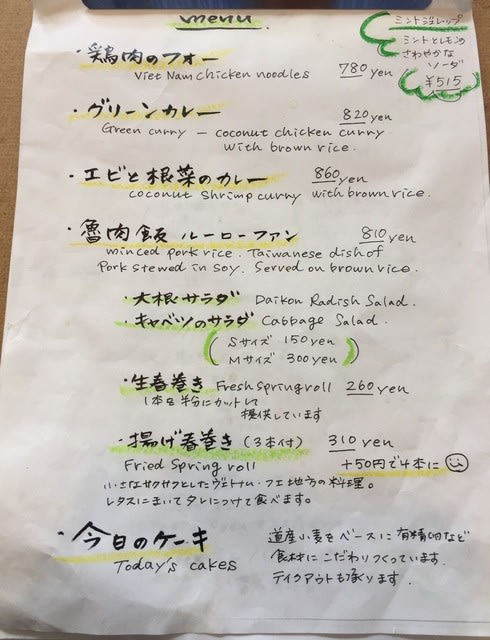 menu
ミントジュレップ
ミントとレモンの
さわやかな
ソーダ
¥515
・鶏肉のフォー
Viet Nam chicken noodles 780 yen
・グリーンカレー 820 yen
Green curry – coconut chicken curry
with brown rice.
・エビと根菜のカレー 860 yen
coconut shrimp curry with brown rice.
・魯肉飯 ルーローファン 810 yen
minced pork rice. Taiwanese dish of
Pork stewed in soy. Served on brown rice.
・大根サラダ Daikon Radish Salad.
・キャベツのサラダ Cabbage Salad.
(Sサイズ 150 yen
Mサイズ 300 yen)
・生春巻き Fresh Spring roll 260 yen
1本を半分にカットして
提供しています
・揚げ春巻き(3本付) 310 yen
Fried Spring roll +50円で4本に
小さなサクサクとしたヴェトナム・フエ地方の料理。
レタスにまいてタレにつけて食べます。
・今日のケーキ
Today's cakes
道産小麦をベースに有精卵など
食材にこだわりつくっています.
テイクアウトも承ります.